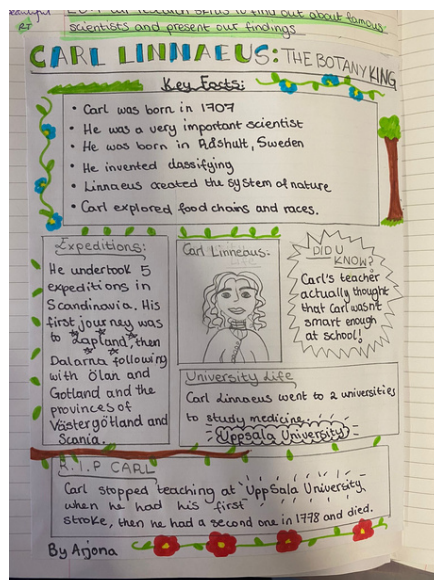 to find out about famous
scientists and present our findings
CARL LINNAEUS: THE BOTANY KING
Key Facts:
• Carl was born in 1707
• He was a very important scientist
• He was born in Råshult, Sweden
• He invented classifying
• Linnaeus created the system of nature
• Carl explored food chains and races.
Expeditions:
He undertook 5
expeditions in
Scandinavia. His
first journey was
to Lapland, then
Dalarna following
with Ölan and
Gotland and the
provinces of
Västergötland and
Scania.
Carl Linneaus:
DID U
KNOW?
Carl's teacher
actually thought
that Carl wasnt
smart enough
at school!
University Life
Carl Linnaeus went to 2 universities
to study medicine.
Uppsala University
R.I.P CARL
Carl stopped teaching at Uppsala University,
when he had his first
stroke, then he had a second one in 1778 and died.
By Arjona